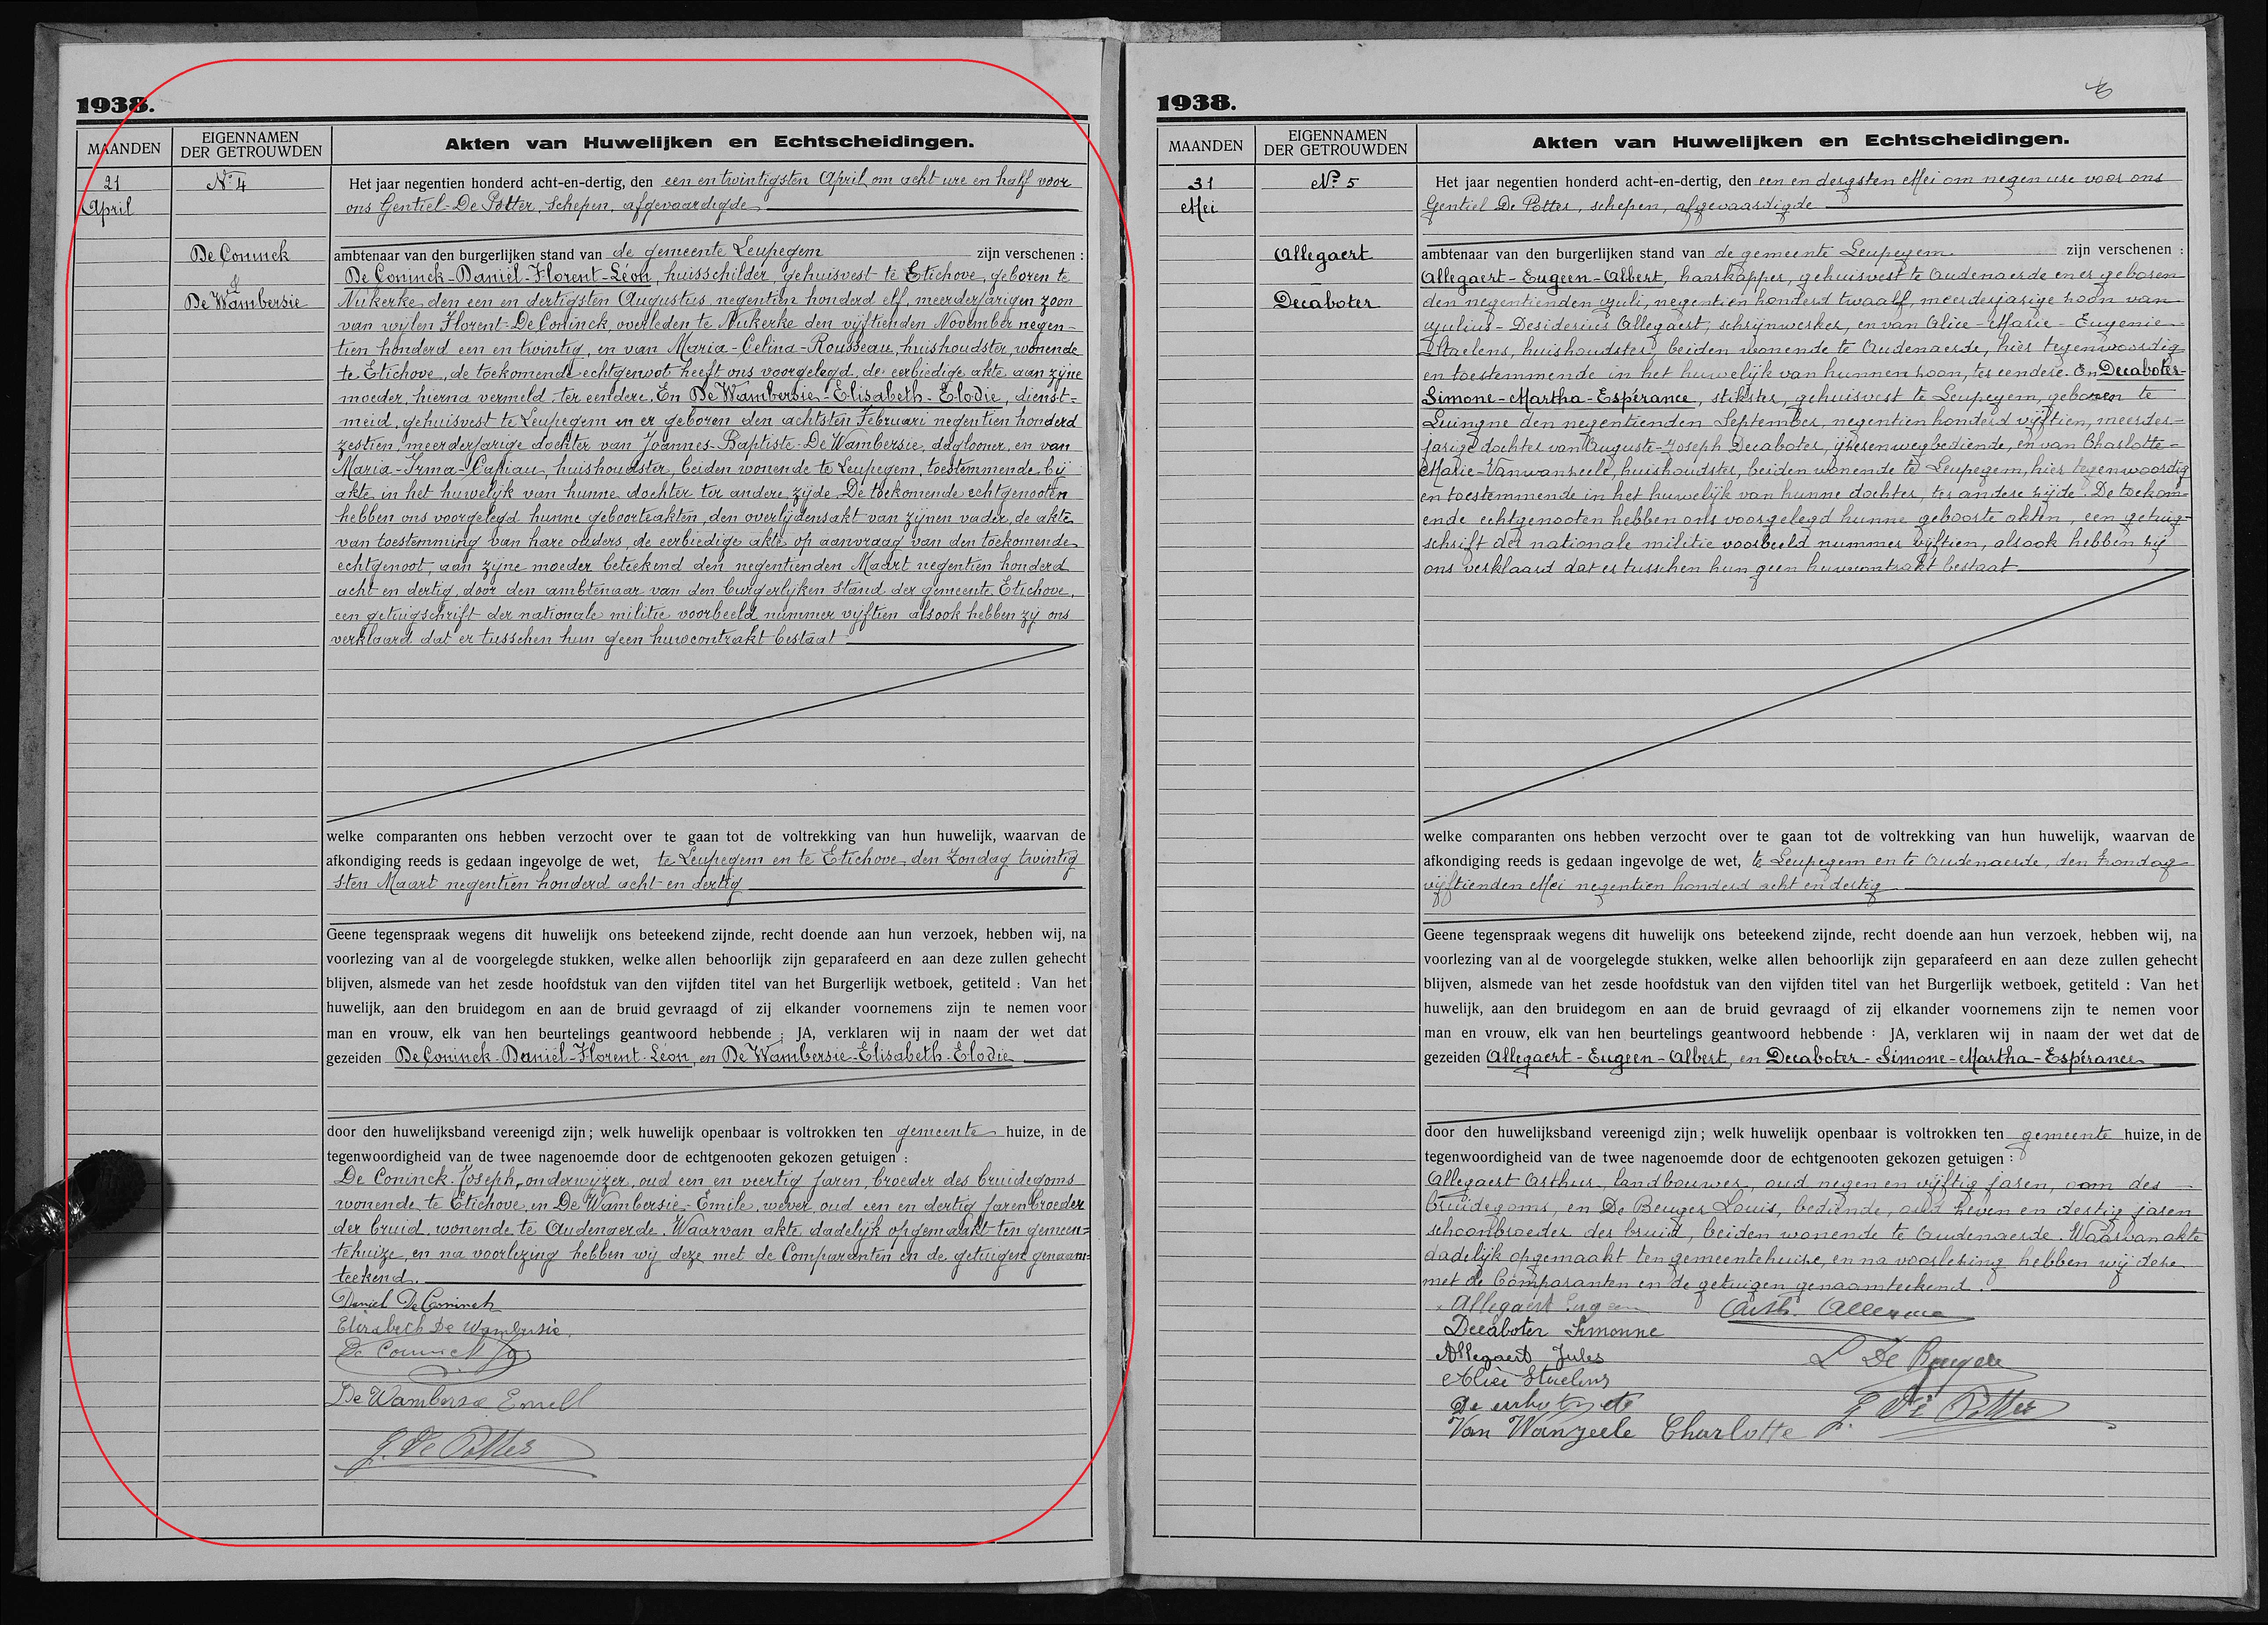 1938.
MAANDEN
EIGENNAMEN
DER GETROUWDEN
Akten van Huwelijken en Echtscheidingen.
21
April
N° 4
De Coninck
&
De Wambersie
Het jaar negentien honderd acht-en-dertig, den een en twintigsten April om acht ure en half voor
ons Gentiel-De Potter, Schepen, afgevaardigde
ambtenaar van den burgerlijken stand van de gemeente Leupegem zijn verschenen :
De Coninck-Daniël-Florent-Léon, huisschilder, gehuisvest te Etichove, geboren te
Nukerke den een en dertigsten Augustus negentien honderd elf, meerderjarigen zoon
van wijlen Florent-De Coninck, overleden te Nukerke den vijftienden November negen-
tien honderd een en twintig, en van Maria-Celina-Rousseau, huishoudster, wonende
te Etichove, de toekomende echtgenoot heeft ons voorgelegd, de eerbiedige akte aan zijne
moeder, hierna vermeld, ter eendere. En De Wambersie-Elisabeth-Elodie, dienst=
meid, gehuisvest te Leupegem en er geboren den achtsten Februari negentien honderd
zestien, meerderjarige dochter van Joannes-Baptiste-De Wambersie, daglooner, en van
Maria-Irma-Capiau, huishoudster, beiden wonende te Leupegem, toestemmende bij
akte in het huwelijk van hunne dochter ter andere zijde. De toekomende echtgenooten
hebben ons voorgelegd hunne geboorteakten, den overlijdensakt van zijnen vader, de akte
van toestemming van hare ouders, de eerbiedige akte op aanvraag van den toekomende
echtgenoot, aan zijne moeder beteekend den negentienden Maart negentien honderd
acht en dertig, door den ambtenaar van den burgerlijken stand der gemeente Etichove,
een getuigschrift der nationale militie voorbeeld nummer vijftien alsook hebben zij ons
verklaard dat er tusschen hun geen huwcontrakt bestaat
welke comparanten ons hebben verzocht over te gaan tot de voltrekking van hun huwelijk, waarvan de
afkondiging reeds is gedaan ingevolge de wet, te Leupegem en te Etichove, den Zondag twintig
sten Maart negentien honderd acht en dertig
Geene tegenspraak wegens dit huwelijk ons beteekend zijnde, recht doende aan hun verzoek, hebben wij, na
voorlezing van al de voorgelegde stukken, welke allen behoorlijk zijn geparafeerd en aan deze zullen gehecht
blijven, alsmede van het zesde hoofdstuk van den vijfden titel van het Burgerlijk wetboek, getiteld : Van het
huwelijk, aan den bruidegom en aan de bruid gevraagd of zij elkander voornemens zijn te nemen voor
man en vrouw, elk van hen beurtelings geantwoord hebbende : JA, verklaren wij in naam der wet dat
gezeiden De Coninck-Daniël-Florent-Léon, en De Wambersie-Elisabeth-Elodie
door den huwelijksband vereenigd zijn; welk huwelijk openbaar is voltrokken ten gemeente huize, in de
tegenwoordigheid van de twee nagenoemde door de echtgenooten gekozen getuigen :
De Coninck-Joseph, onderwijzer, oud een en veertig jaren, broeder des bruidegoms
wonende te Etichove, en De Wambersie-Emile, wever, oud een en dertig jaren broeder
der bruid, wonende te Oudenaerde. Waarvan akte dadelijk opgemaakt ten gemeen=
tehuize, en na voorlezing hebben wij deze met de Comparanten en de getuigen genaam-
teekend.
Daniel De Coninck
Elisabeth De Wambersie.
De Coninck Jos
De Wambersie Emiel
G. De Potter
1938.
MAANDEN
EIGENNAMEN
DER GETROUWDEN
Akten van Huwelijken en Echtscheidingen.
31
Mei
N° 5
Allegaert
–
Decaboter
Het jaar negentien honderd acht-en-dertig, den een en dergsten Mei om negen ure voor ons
Gentiel De Potter, schepen, afgevaardigde
ambtenaar van den burgerlijken stand van de gemeente Leupegem zijn verschenen :
Allegaert-Eugeen-Albert, haarkapper, gehuisvest te Audenaerde en er geboren
den negentienden Juli, negentien honderd twaalf, meerderjarige zoon van
Julius-Desiderius Allegaert, schrijnwerker, en van Alice-Marie-Eugenie
Staelens, huishoudster, beiden wonende te Audenaerde, hier tegenwoordig
en toestemmende in het huwelijk van hunnen zoon, ter eendere. En Decaboter-
Simone-Martha-Espérance, stikster, gehuisvest te Leupegem, geboren te
Luingne den negentienden September, negentien honderd vijftien, meerder-
jarige dochter van Auguste-Joseph Decaboter, ijzerenwegbediende, en van Charlotte=
Marie-Vanwanzeele, huishoudster, beiden wonende te Leupegem, hier tegenwoordig
en toestemmende in het huwelijk van hunne dochter, ter andere zijde. De toekom=
ende echtgenooten hebben ons voorgelegd hunne geboorte akten, een getuig-
schrift der nationale militie voorbeeld nummer vijftien, alsook hebben zij
ons verklaard dat er tusschen hun geen huwcontrakt bestaat
welke comparanten ons hebben verzocht over te gaan tot de voltrekking van hun huwelijk, waarvan de
afkondiging reeds is gedaan ingevolge de wet, te Leupegem en te Audenaerde, den Zondag
vijftienden Mei negentien honderd acht en dertig
Geene tegenspraak wegens dit huwelijk ons beteekend zijnde, recht doende aan hun verzoek, hebben wij, na
voorlezing van al de voorgelegde stukken, welke allen behoorlijk zijn geparafeerd en aan deze zullen gehecht
blijven, alsmede van het zesde hoofdstuk van den vijfden titel van het Burgerlijk wetboek, getiteld : Van het
huwelijk, aan den bruidegom en aan de bruid gevraagd of zij elkander voornemens zijn te nemen voor
man en vrouw, elk van hen beurtelings geantwoord hebbende : JA, verklaren wij in naam der wet dat de
gezeiden Allegaert-Eugeen-Albert, en Decaboter-Simone-Martha-Espérance
door den huwelijksband vereenigd zijn; welk huwelijk openbaar is voltrokken ten gemeente huize, in de
tegenwoordigheid van de twee nagenoemde door de echtgenooten gekozen getuigen :
Allegaert Arthur, landbouwer, oud negen en vijftig jaren, oom des
bruidegoms, en De Beuger Louis, bediende, oud zeven en dertig jaren
schoonbroeder der bruid, beiden wonende te Audenaerde. Waarvan akte
dadelijk opgemaakt ten gemeentehuize, en na voorlezing hebben wij deze
met de Comparanten en de getuigen genaamteekend.
Allegaert Eugeen
Decaboter Simonne
Allegaert Jules
L De Beuger
Alice Staelens
G. De Potter
Van Wanzeele Charlotte